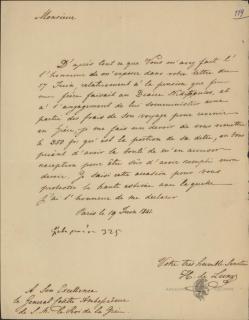 119
Monsieur
D'après tout ce que Vous m'avez fait l'
l'honneur de m'exposer dans votre lettre du
17 Juin, relativement à la pension que feu
mon frère faisait au Sieur et
à l'engagement de lui
partie des frais de son voyage pour
en Grèce, je me fais un devoir de vous remettre
les 350 fr. qui est la portion de sa dette, en vous
priant d'avoir la bonté de m'en accuser
réception pour être sûr d'avoir rempli mon
devoir. Je saisis cette occasion pour vous
protester la haute estime avec laquelle
j'ai l'honneur de me déclarer
Paris le 19 Juin
325
Votre très humble Serviteur
de
A Son Excellence
le Général
de S. M. le Roi de la Grèce